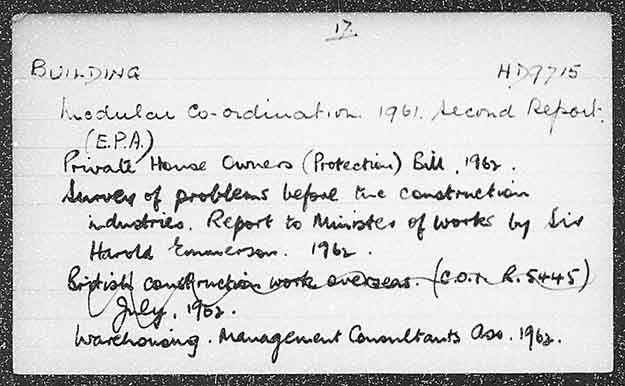 17.
BUILDING HD9715
Modular Co-ordination. 1961. Second Report.
(E.P.A.)
Private House Owners (Protection) Bill, 1962.
Survey of problems before the construction
industries. Report to Minister of Works by Sir
Harold Emmerson. 1962.
British construction work overseas. (C.O.I. R.5445)
July, 1962.
Warehousing. Management Consultants Ass. 1962.